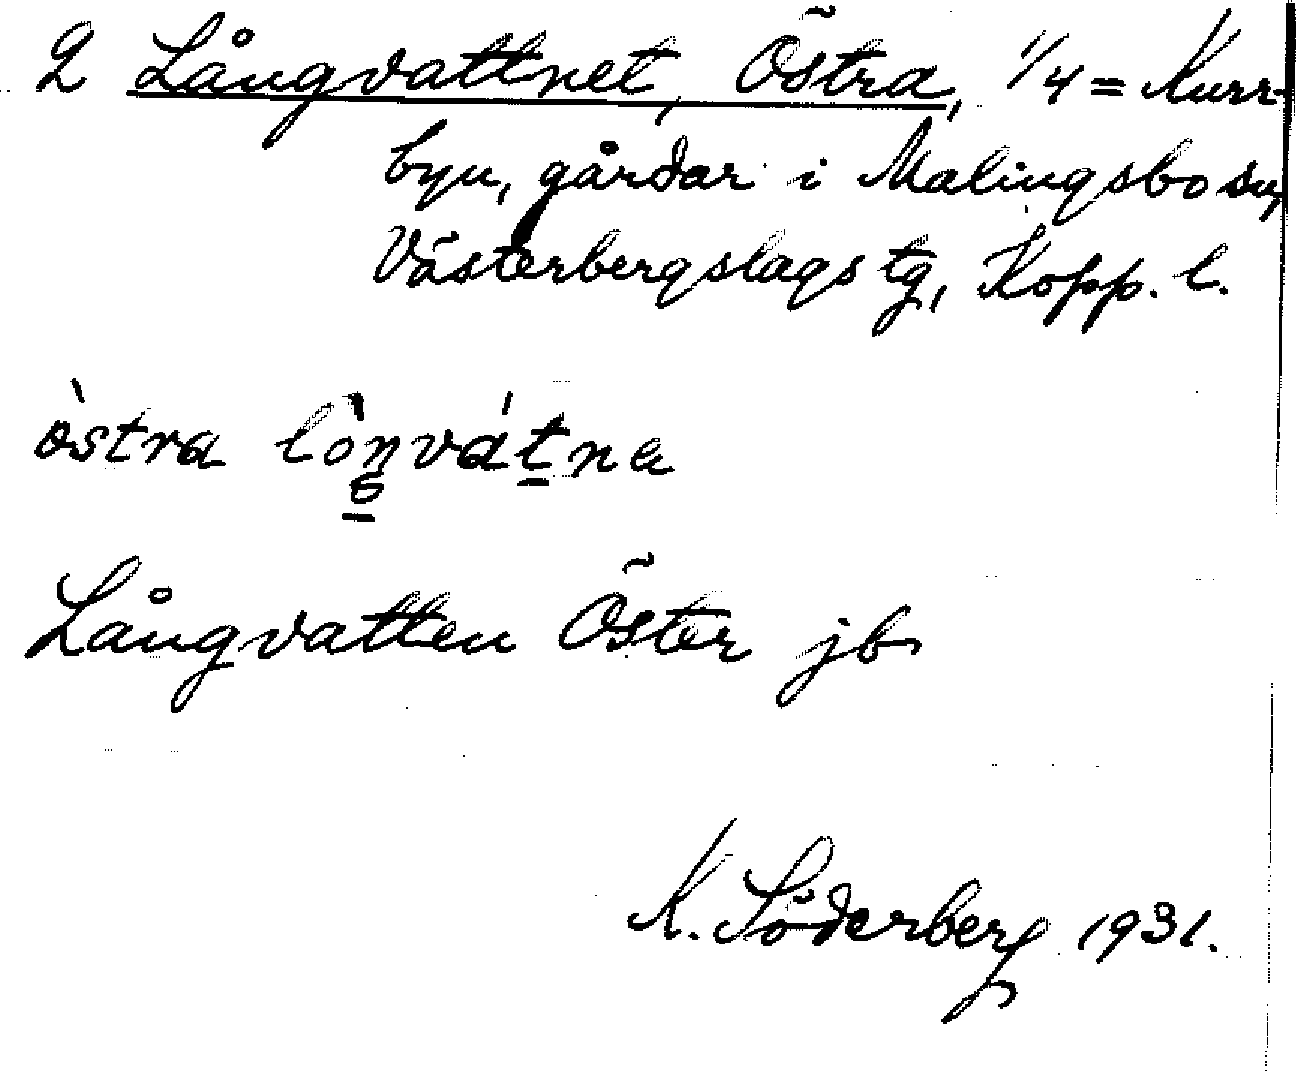 2 Långvattnet, Östra, 1/4 = Kurr-
byn, gårdar i Malingsbo sn,
Västerbergslags tg, Kopp. l.
östra
Långvatten Öster jb
K. Söderberg 1931.